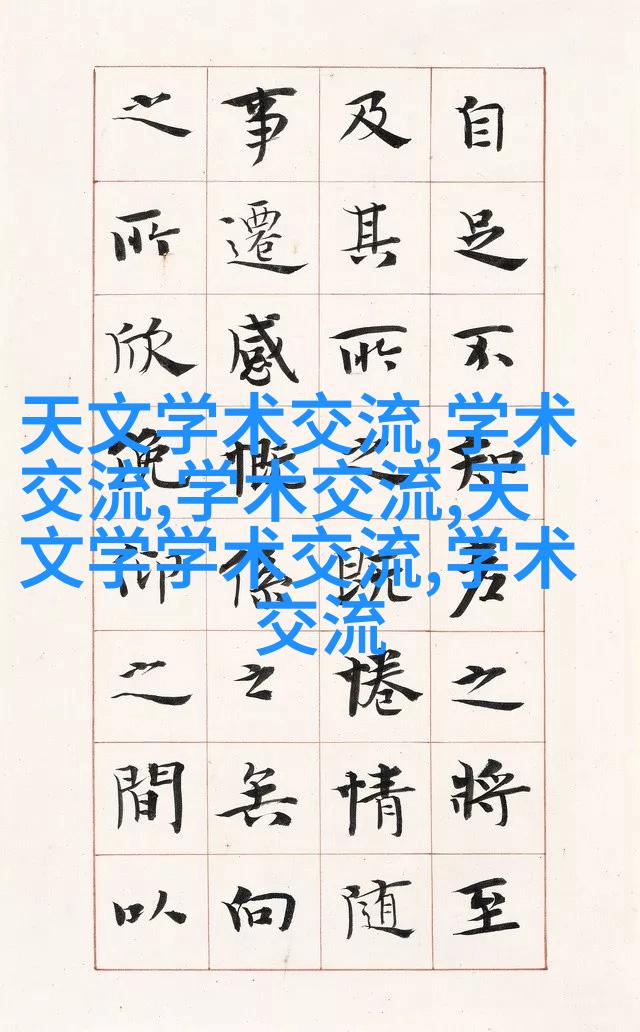 自足不知老之將至
及其所之既惓情隨
事遷感慨係之矣向
之所欣俛仰之間以
天文学术交流,学术
交流,学术交流,天
文学学术交流,学术
交流